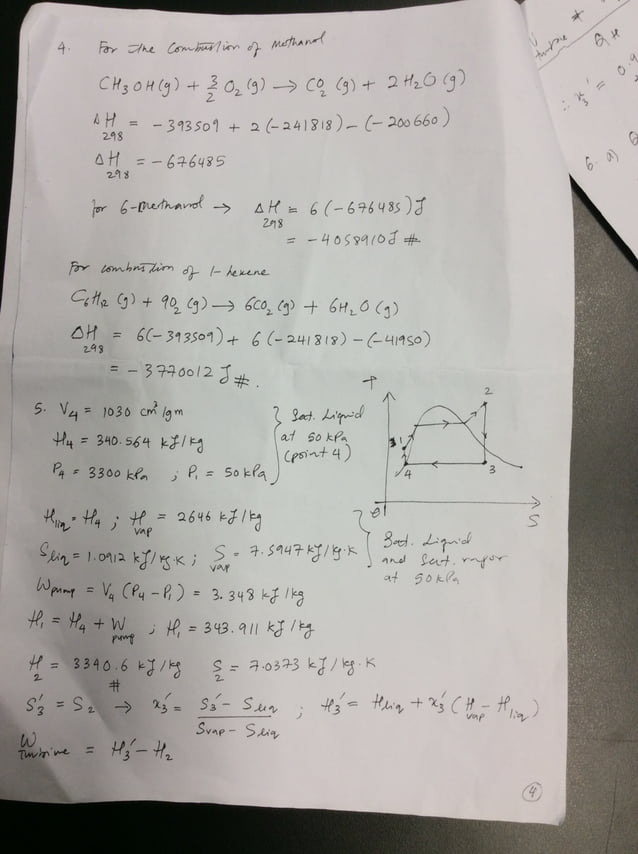 4. For the Combustion of Methanol
CH3OH(g) + 3/2 O2(g) → CO2(g) + 2H2O(g)
ΔH298 = -393509 + 2(-241818) - (-200660)
ΔH298 = -676485
for 6-methanol → ΔH298 = 6(-676485)J
= -4058910J #
For combustion of 1-hexene
C6H12(g) + 9O2(g) → 6CO2(g) + 6H2O(g)
ΔH298 = 6(-393509) + 6(-241818) - (-41950)
= -3770012J #.
5. V4 = 1030 cm³/gm
H4 = 340.564 kJ/kg
P4 = 3300 kPa ; P1 = 50kPa
Sat. Liquid
at 50 kPa
(point 4)
T
2
1
4
3
0
S
Hliq = H4 ; Hvap = 2646 kJ/kg
Sliq = 1.0912 kJ/kg.K ; Svap = 7.5947 kJ/kg.K
Sat. Liquid
and Sat. vapor
at 50kPa
Wpump = V4 (P4 - P1) = 3.348 kJ/kg
H1 = H4 + Wpump ; H1 = 343.911 kJ/kg
H2 = 3340.6 kJ/kg S2 = 7.0373 kJ/kg.K
#
S3' = S2 → x3' = (S3' - Sliq)/(Svap - Sliq) ; H3' = Hliq + x3' (Hvap - Hliq)
Wturbine = H3' - H2
4
turbine
QH
∴ x3' = 0.9
6. a)